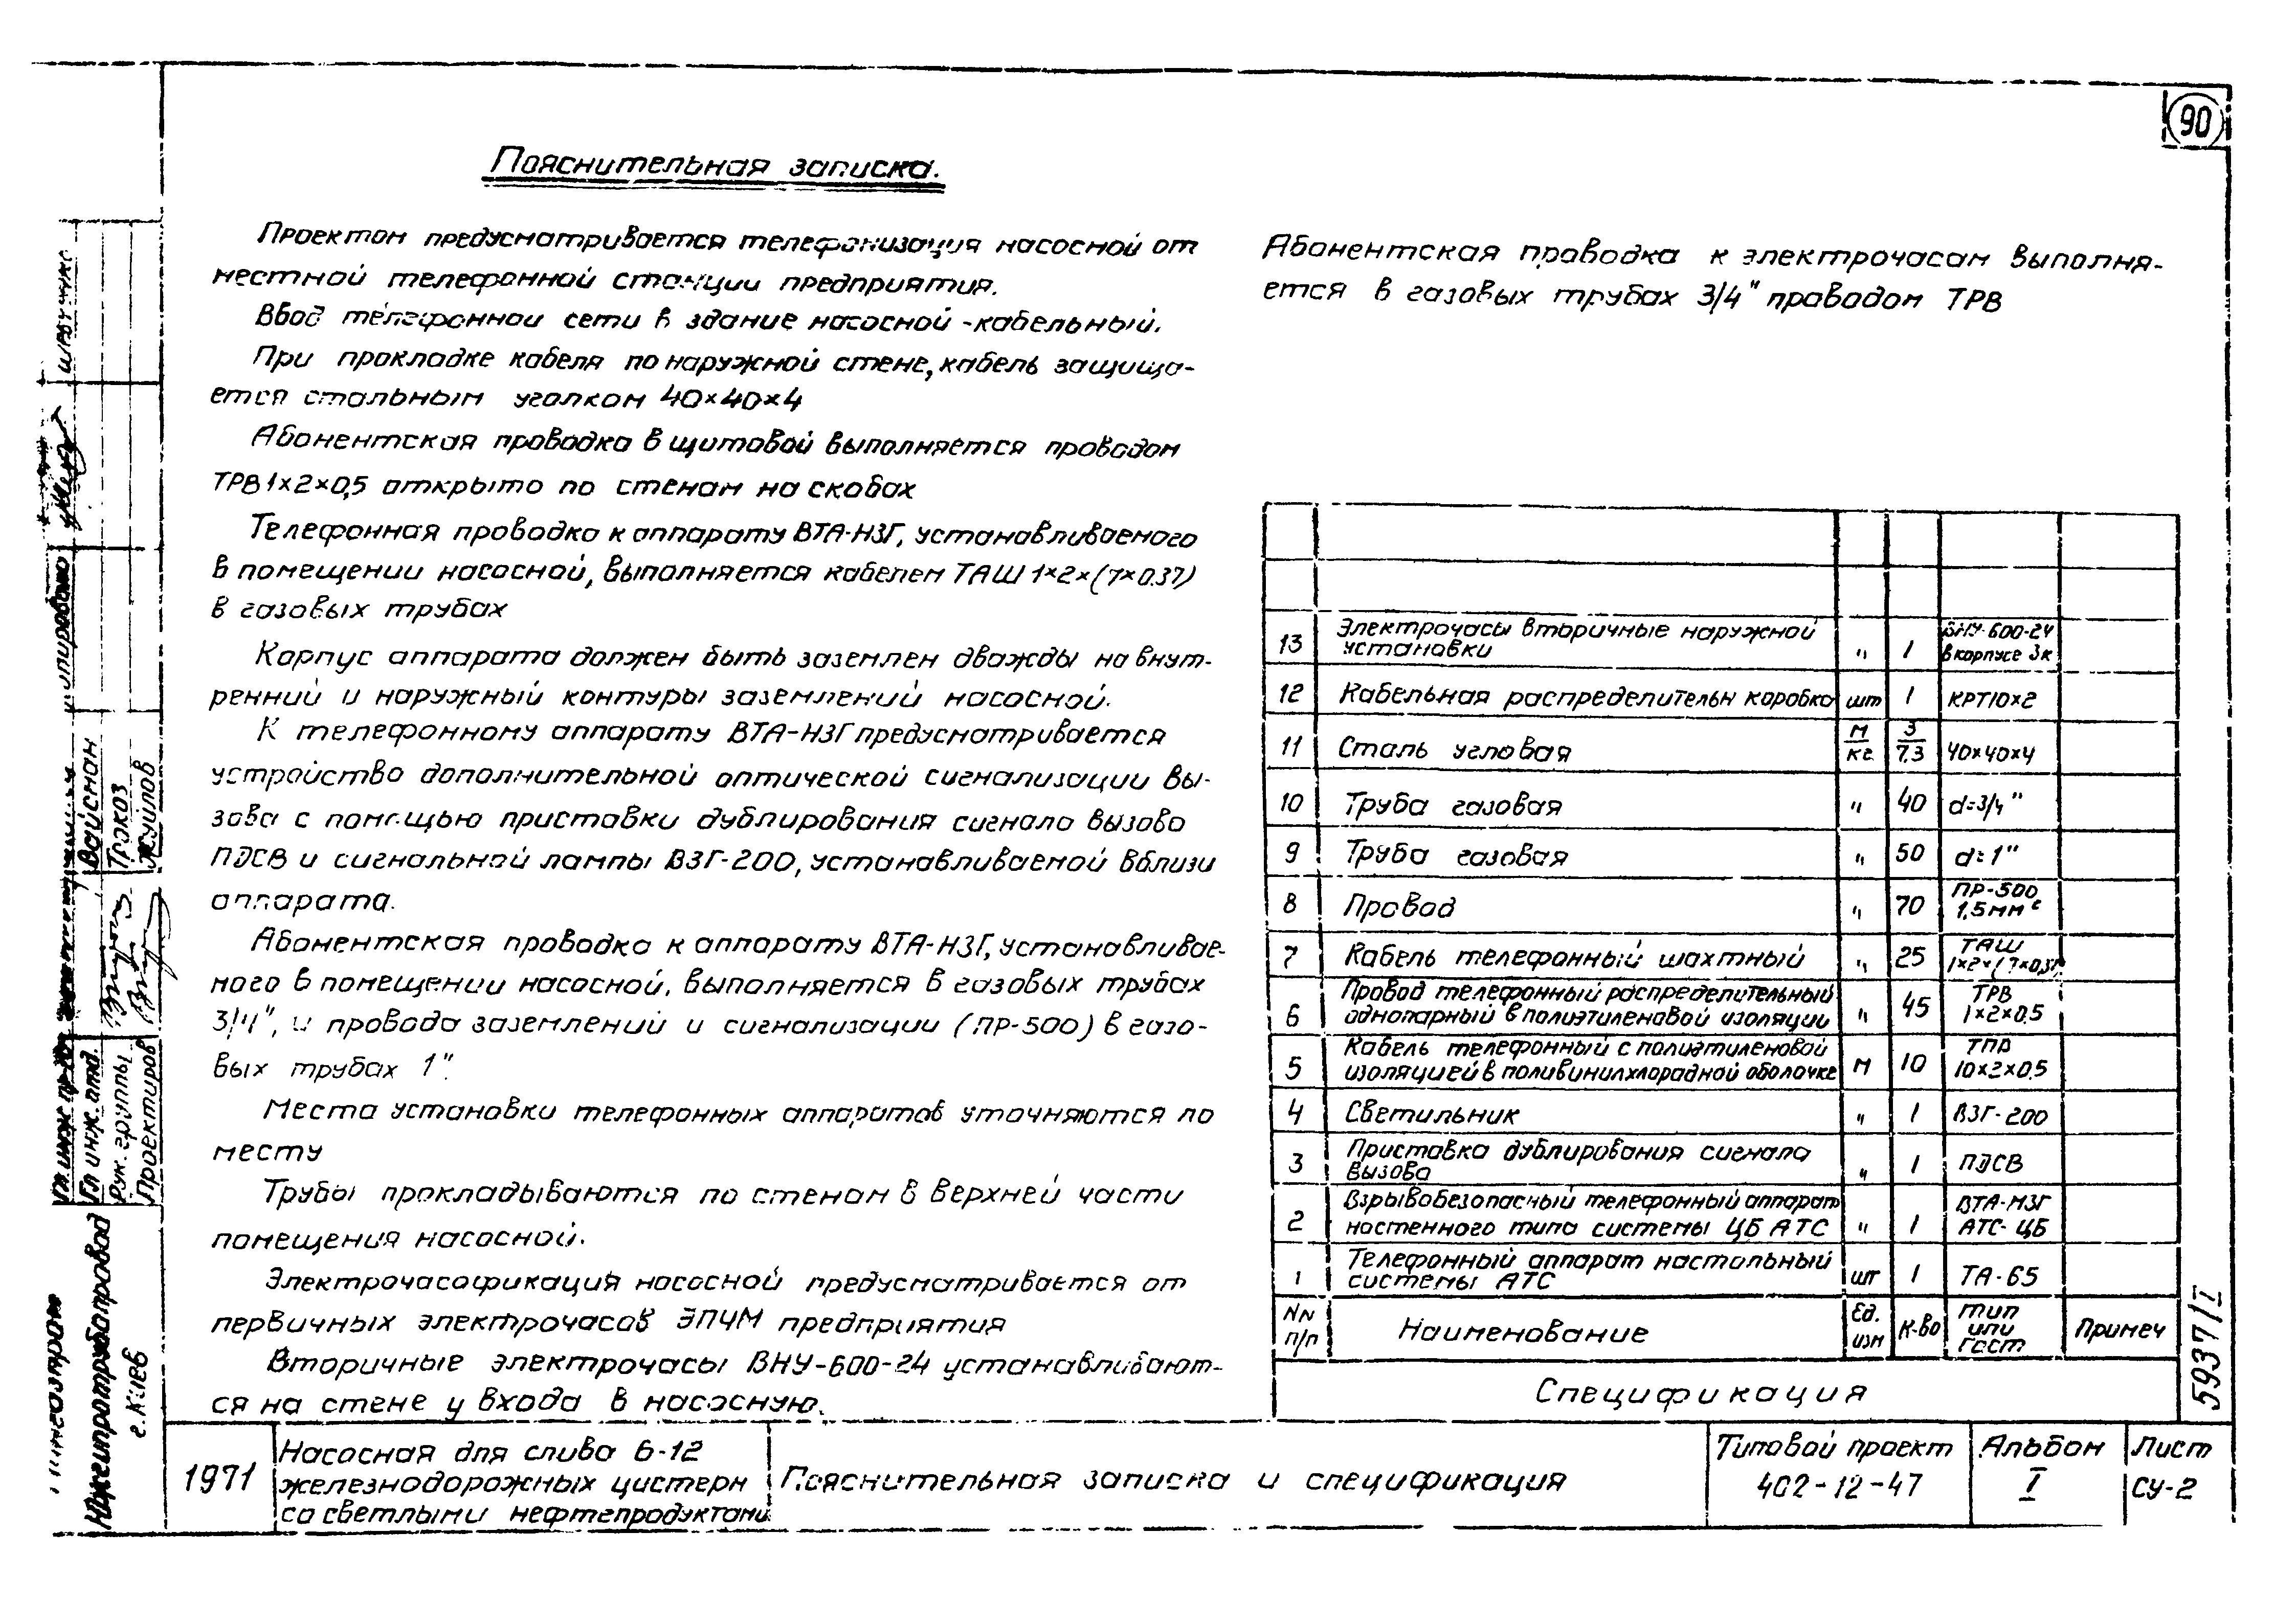 90
Пояснительная записка.
Проектом предусматривается телефонизация насосной от
местной телефонной станции предприятия.
Ввод телефонной сети в здание насосной - кабельный.
При прокладке кабеля по наружной стене, кабель защища-
ется стальным уголком 40×40×4
Абонентская проводка в щитовой выполняется проводом
ТРВ 1×2×0,5 открыто по стенам на скобах
Телефонная проводка к аппарату ВТА-НЗГ, устанавливаемого
в помещении насосной, выполняется кабелем ТАШ 1×2×(7×0.37)
в газовых трубах
Корпус аппарата должен быть заземлен дважды на внут-
ренний и наружный контуры заземлений насосной.
К телефонному аппарату ВТА-НЗГ предусматривается
устройство дополнительной оптической сигнализации вы-
зова с помощью приставки дублирования сигнала вызова
ПДСВ и сигнальной лампы ВЗГ-200, устанавливаемой вблизи
аппарата.
Абонентская проводка к аппарату ВТА-НЗГ, устанавливае-
мого в помещении насосной, выполняется в газовых трубах
3/4", и провода заземлений и сигнализации (ПР-500) в газо-
вых трубах 1".
Места установки телефонных аппаратов уточняются по
месту
Трубы прокладываются по стенам в верхней части
помещения насосной.
Электрочасофикация насосной предусматривается от
первичных электрочасов ЭПЧМ предприятия
Вторичные электрочасы ВНУ-600-24 устанавливают-
ся на стене у входа в насосную.
Абонентская проводка к электрочасам выполня-
ется в газовых трубах 3/4" проводом ТРВ
13 Электрочасы вторичные наружной установки " 1 ВНУ-600-24 в корпусе 3к
12 Кабельная распределительн коробка шт 1 КРТ10×2
11 Сталь угловая м/кг 3/7.3 40×40×4
10 Труба газовая " 40 d=3/4"
9 Труба газовая " 50 d=1"
8 Провод " 70 ПР-500 1,5мм²
7 Кабель телефонный шахтный " 25 ТАШ 1×2×(7×0.37)
6 Провод телефонный распределительный однопарный в полиэтиленовой изоляции " 45 ТРВ 1×2×0.5
5 Кабель телефонный с полиэтиленовой изоляцией в поливинилхлорадной оболочке м 10 ТПВ 10×2×0.5
4 Светильник " 1 ВЗГ-200
3 Приставка дублирования сигнала вызова " 1 ПДСВ
2 Взрывобезопасный телефонный аппарат настенного типа системы ЦБ АТС " 1 ВТА-НЗГ АТС-ЦБ
1 Телефонный аппарат настольный системы АТС шт 1 ТА-65
NN п/п Наименование Ед. изм К-во Тип или гост Примеч
Спецификация
5937/I
1971
Насосная для слива 6-12
железнодорожных цистерн
со светлыми нефтепродуктами
Пояснительная записка и спецификация
Типовой проект
402-12-47
Альбом
I
Лист
СУ-2
Гл инж. отд.
Рук. группы
Проектиров
Вайсман
Трокоз
Южгипротрубопровод
г. Киев